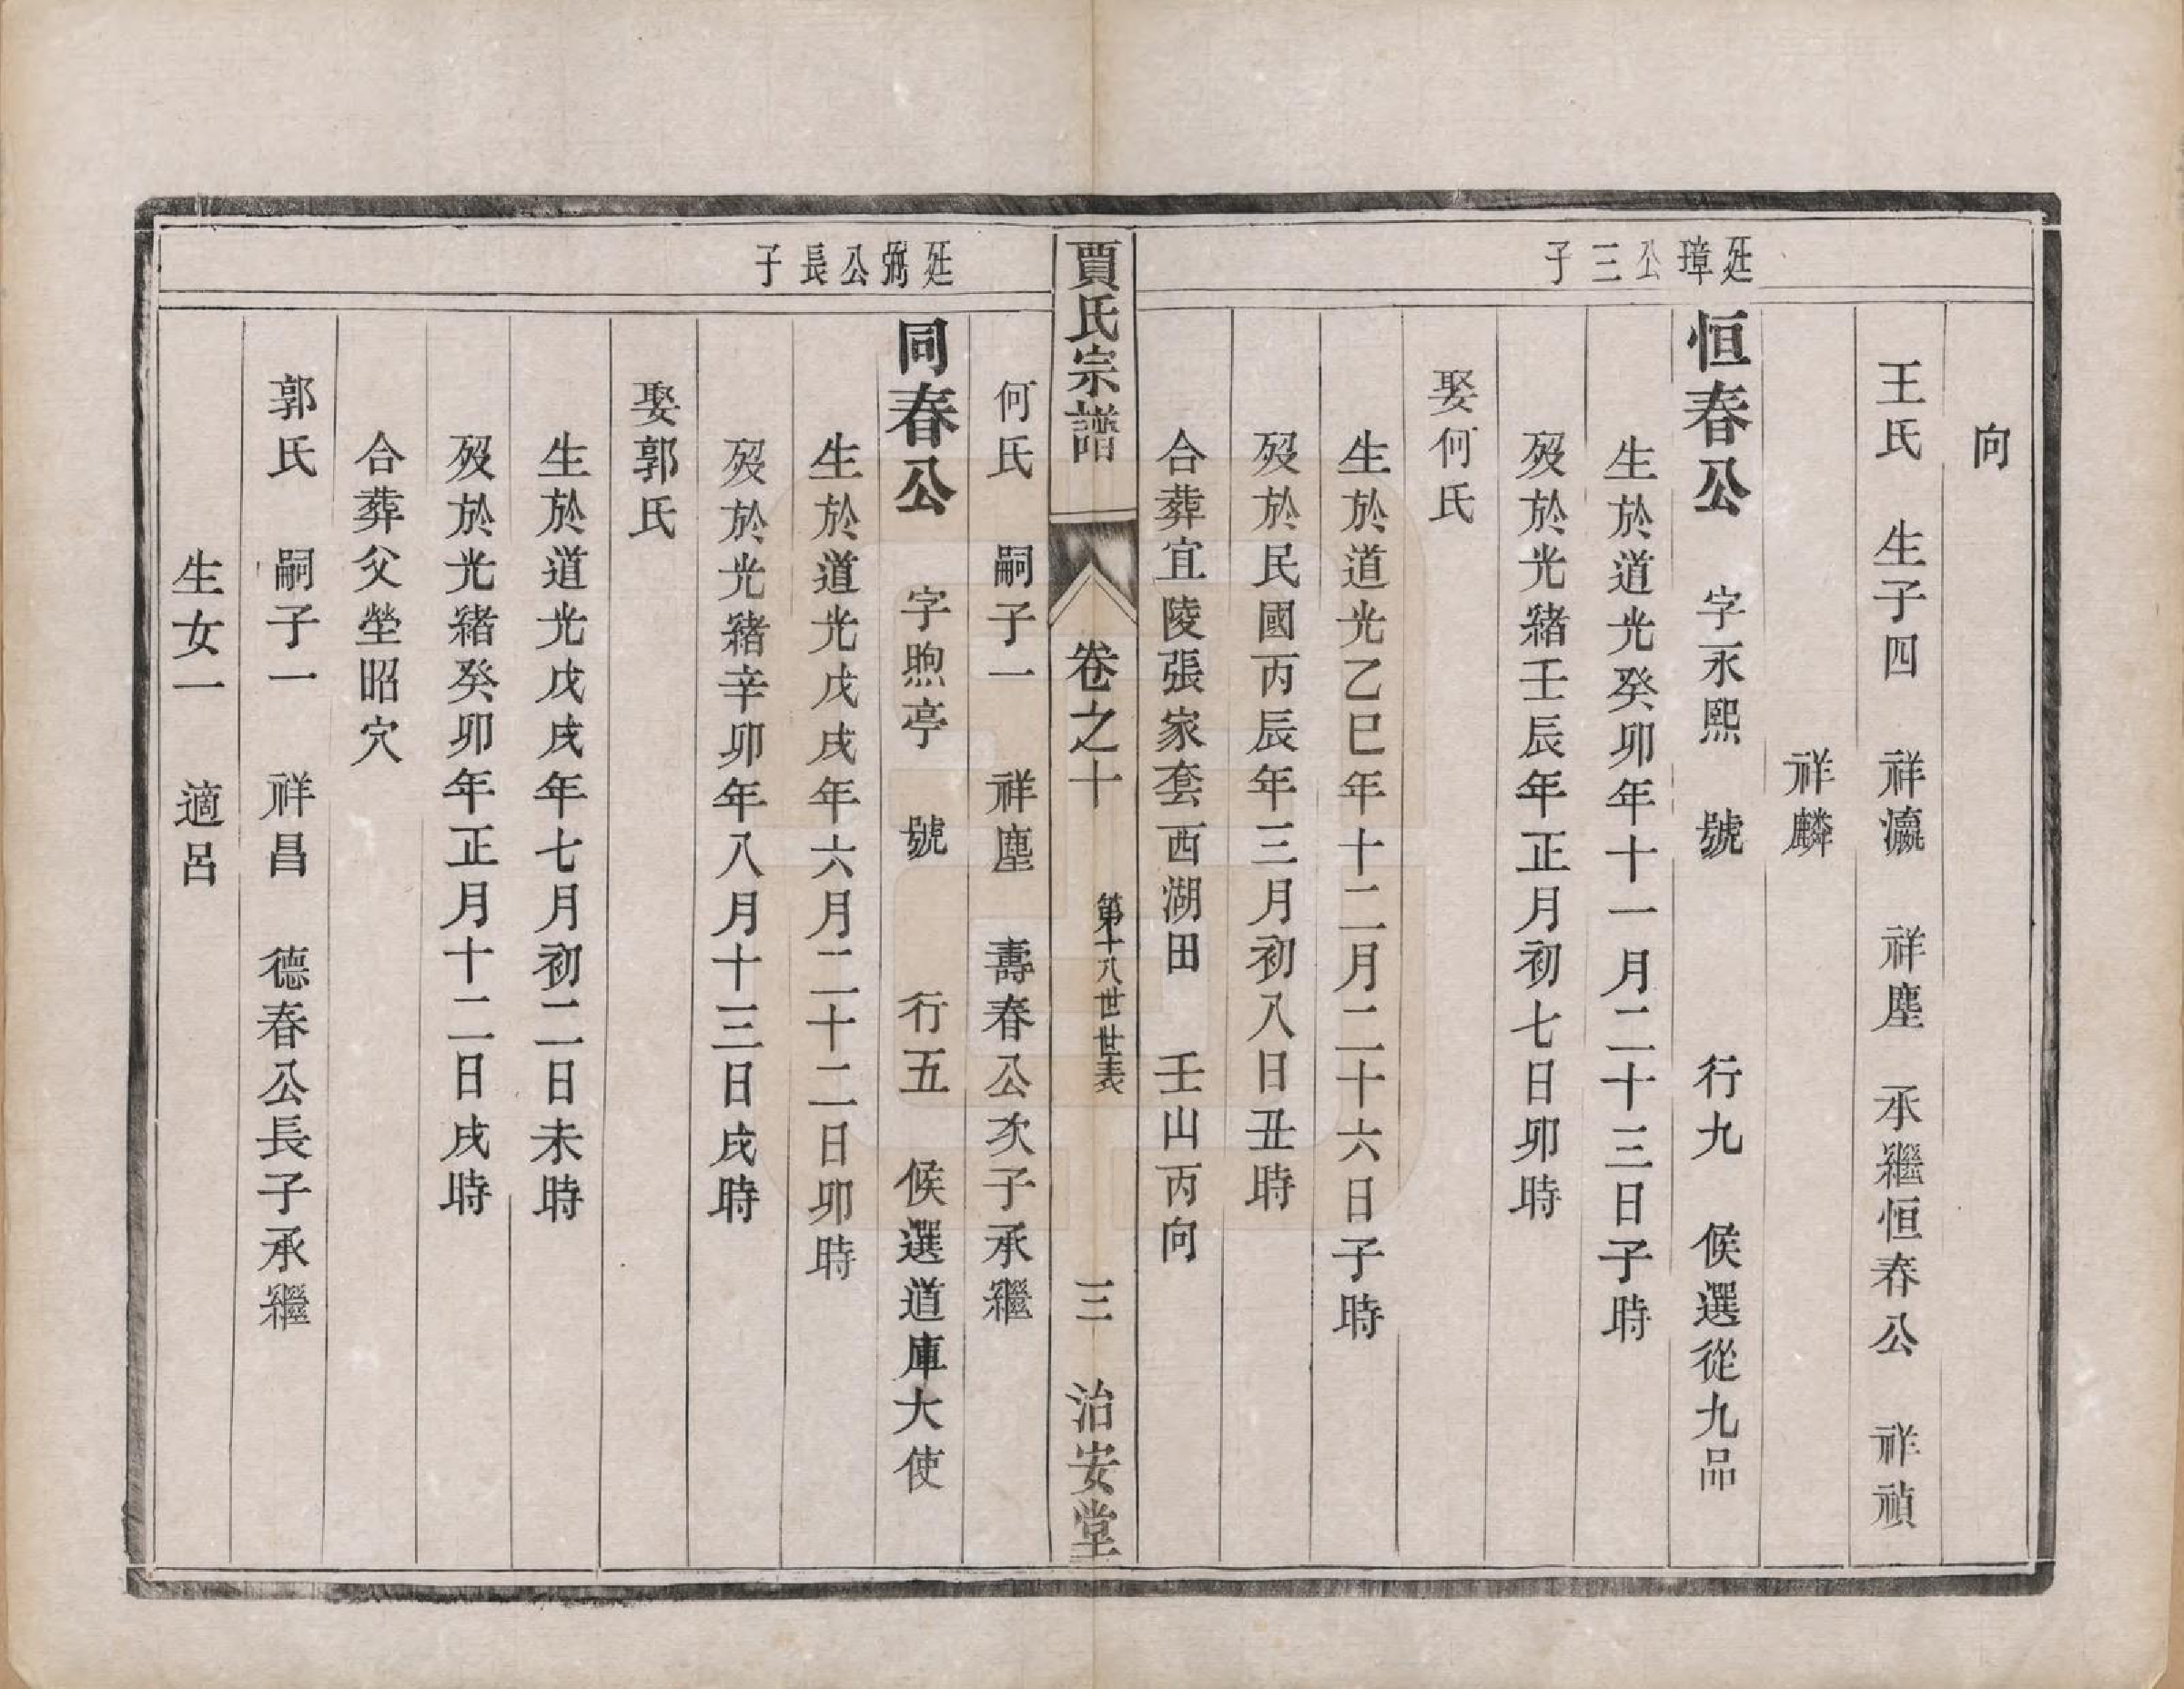 廷璋公三子
向
王氏　生子四　祥瀛　祥塵　承繼恒春公　祥禎
祥麟
恒春公　字永熙　號　行九　候選從九品
生於道光癸卯年十一月二十三日子時
歿於光緒壬辰年正月初七日卯時
娶何氏
生於道光乙巳年十二月二十六日子時
歿於民國丙辰年三月初八日丑時
合葬宜陵張家套西湖田　壬山丙向
賈氏宗譜　卷之十　第十八世世表　三　治安堂
廷弼公長子
何氏　嗣子一　祥塵　壽春公次子承繼
同春公　字煦亭　號　行五　候選道庫大使
生於道光戊戌年六月二十二日卯時
歿於光緒辛卯年八月十三日戌時
娶郭氏
生於道光戊戌年七月初二日未時
歿於光緒癸卯年正月十二日戌時
合葬父塋昭穴
郭氏　嗣子一　祥昌　德春公長子承繼
生女一　適呂